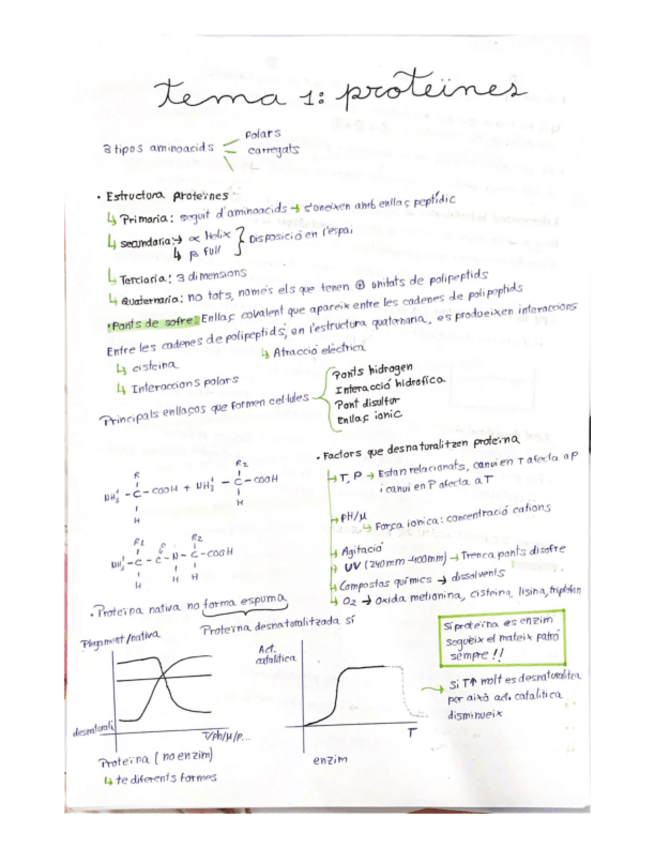 tema 1: proteïnes
3 tipos aminoacids
Polars
carregats
• Estructura proteïnes
↳ Primaria: seguit d'aminoacids → s'oneixen amb enllaç peptídic
↳ secundaria: → α Helix
↳ β Full
Disposició en l'espai
↳ Terciaria: 3 dimensions
↳ Quaternaria: no tots, només els que tenen ⊕ unitats de polipeptids
• Ponts de sofre: Enllaç covalent que apareix entre les cadenes de polipeptids
Entre les cadenes de polipeptids, en l'estructura quaternaria, es produeixen interaccions
↳ cisteina
↳ Atracció elèctrica
↳ Interaccions polars
Principals enllaços que formen cel·lules
Ponts hidrogen
Interacció hidrofica
Pont disulfur
Enllaç ionic
• Factors que desnaturalitzen proteina
↳ T, P → Estan relacionats, canvi en T afecta a P
i canvi en P afecta a T
↳ PH/μ
↳ Força ionica: concentració cations
↳ Agitació
↳ UV (240mm-400mm) → Trenca ponts disofre
↳ Compostos químics → dissolvents
↳ O2 → Oxida metionina, cisteina, lisina,
R
R2
NH3+ - C - COOH + NH3+ - C - COOH
H
H
R1
O
R2
NH3+ - C - C - N - C - COOH
H
H
H
• Proteïna nativa no forma espuma
Proteïna desnaturalitzada sí
Plegament/nativa
T/ph/μ/p...
Proteïna (no enzim)
↳ te diferents formes
Act.
catalítica
T
enzim
Si proteïna es enzim
segueix el mateix patró
sempre!!
→ Si T↑ molt es desnaturalitza
per això act. catalítica
disminueix